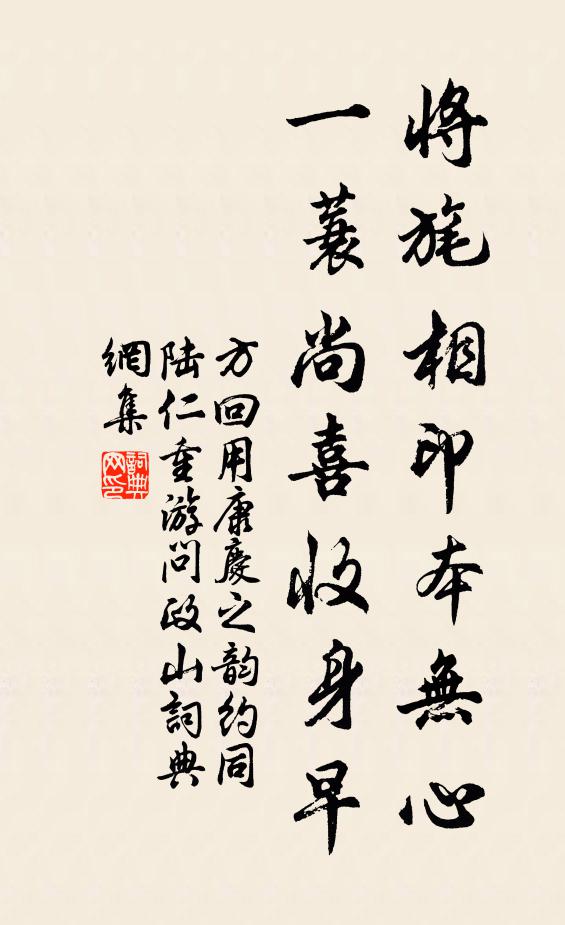 將旄相印本無心
一蓑尚喜收身早
方回用康慶之韵約同
陸仁重游問政山詞典
網集
詞典網印